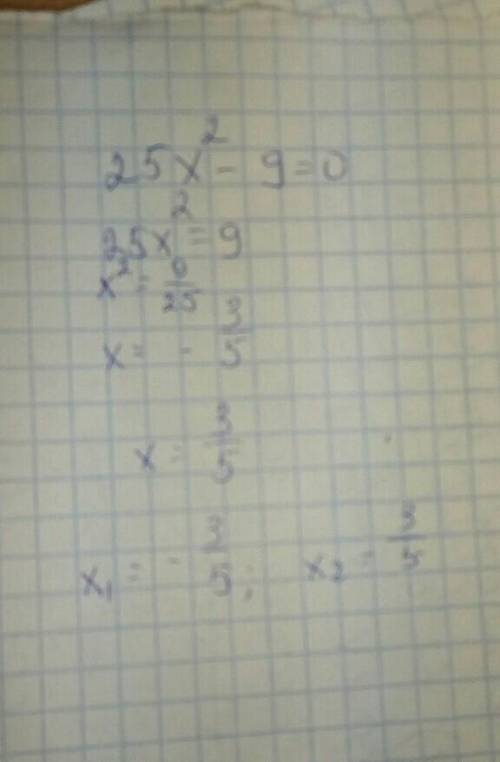 25x² - 9 = 0
25x² = 9
x² = 9/25
x = - 3/5
x = 3/5
x₁ = - 3/5; x₂ = 3/5